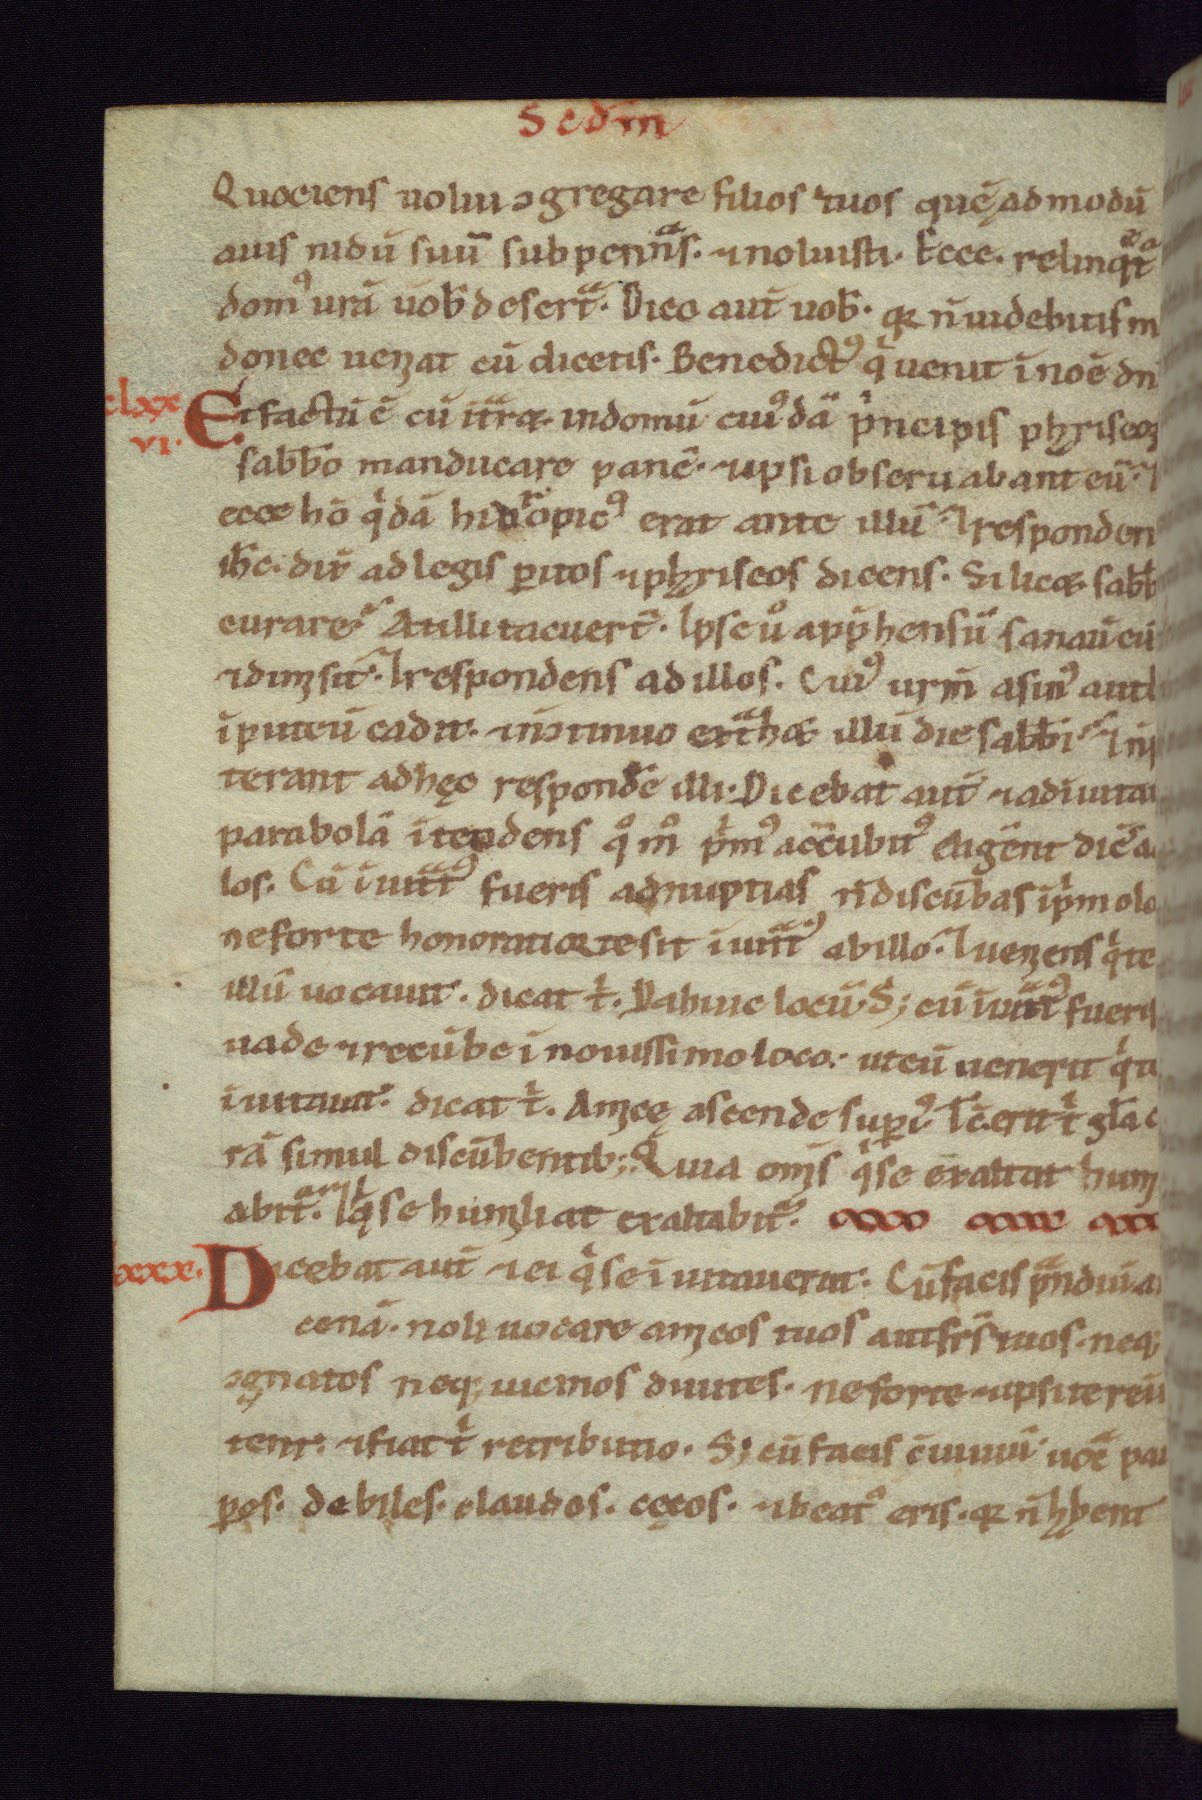 Scdm
Quociens uolui ↄgregare filios tuos quē admodū
auis nidū suū̄ sub pennͣs. ⁊ noluisti. Ecce. relinqͥtͬ
domꝰ urā uob̄ desertͣ. Dico aut̄ uob̄. qꝛ n̄ uidebitis m
donec ueniat cū dicetis. Benedictꝰ qͥ uenit ī noē dn̄i
clxx
vi.
Et factū ē cū itͬret in domū cuiꝰdā pͥncipis phariseoꝝ
sabb̄o manducare panē. ⁊ ipsi obseruabant eū.
ecce hō qͥdā hidropicꝰ erat ante illū. ⁊ responden
ih̄c. dix̄ ad legis p̄itos ⁊ phariseos dicens. Si licet sabb̄
curare? At illi tacuer̄t. Ipse ů app̄hensū sanau̅ eū
⁊ dimisit. ⁊ respondens ad illos. Cuiꝰ ur̄m asinꝰ aut
ī puteū cadit. ⁊ n̄ ↄtinuo extͣhet illū die sabb̄i
terant ad hęc respondē illi. Dicebat aut̄ ⁊ ad inuita
parabolā ītendens qͦ mͦ pͥmꝰ accubitꝰ eligēnt dic̄ a
los. Cū īuitͣtꝰ fueris ad nuptias n̄ discūbas ī pͥmo lo
ne forte honoratior te sit īuitͣtꝰ ab illo. ⁊ ueniens qͥ te
illū uocauit. dicat tͥ. Da huic locū. S; cū īuitͣtꝰ fueris
uade ⁊ recūbe ī nouissimo loco. ut cū uenerit qͥ te
īuitauit. dicat tͥ. Amice ascende sup̄iꝰ. T̄c erit tͥ gl̄a c
rā simul discūbentib;. Quia om̄is qͥ se exaltat humi
abitͬ. ⁊ qͥ se humiliat exaltabitͬ.
lxxx.
Dicebat aut̄ ⁊ ei qͥ se īuitauerat. Cū facis pͣndiū a
cenā. noli uocare amicos tuos aut fr̄s tuos. neq;
ↄgnatos neq; uicinos diuites. ne forte ⁊ ipsi te reī
tent. ⁊ fiat tͥ retributio. S; cū facis c̄uiuiū. uocͣ pau
p̄es. debiles. claudos. cęcos. ⁊ beatꝰ eris. qꝛ n̄ hn̄t